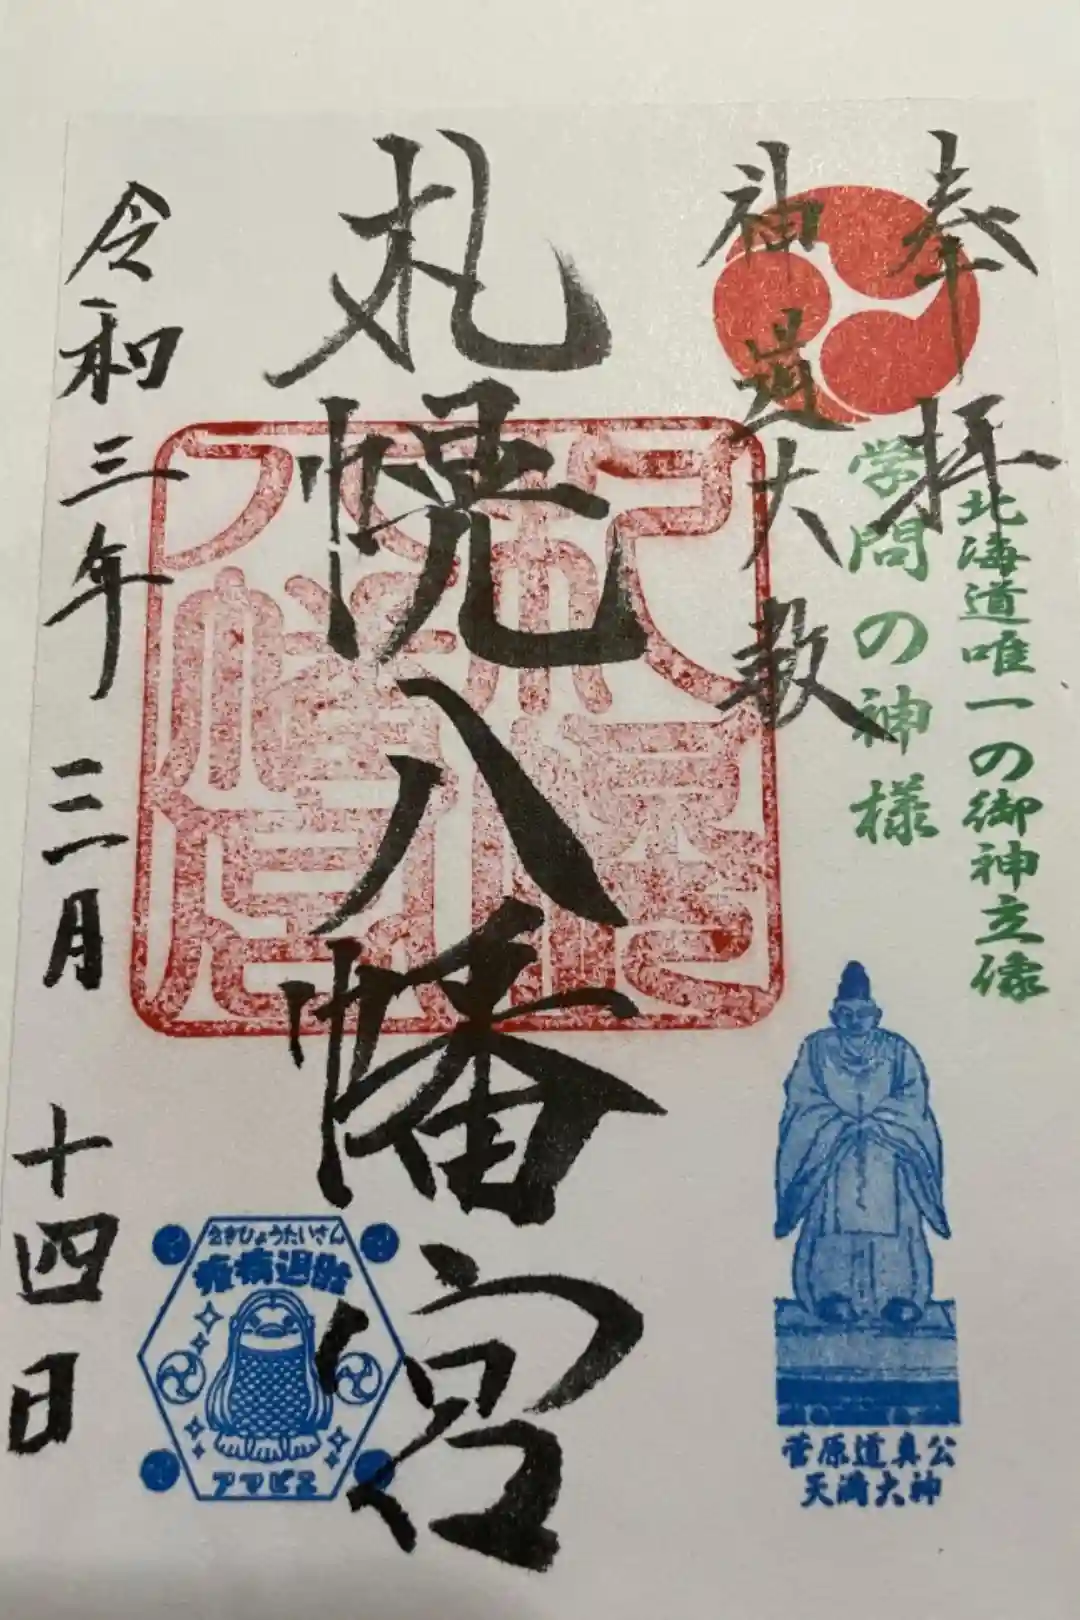 奉拝
北海道唯一の御神立像
学問の神様
神道大教
札幌八幡宮
令和三年 三月 十四日
札幌八幡宮
菅原道真公
天満大神
えきびょうたいさん
疫病退散
アマビエ